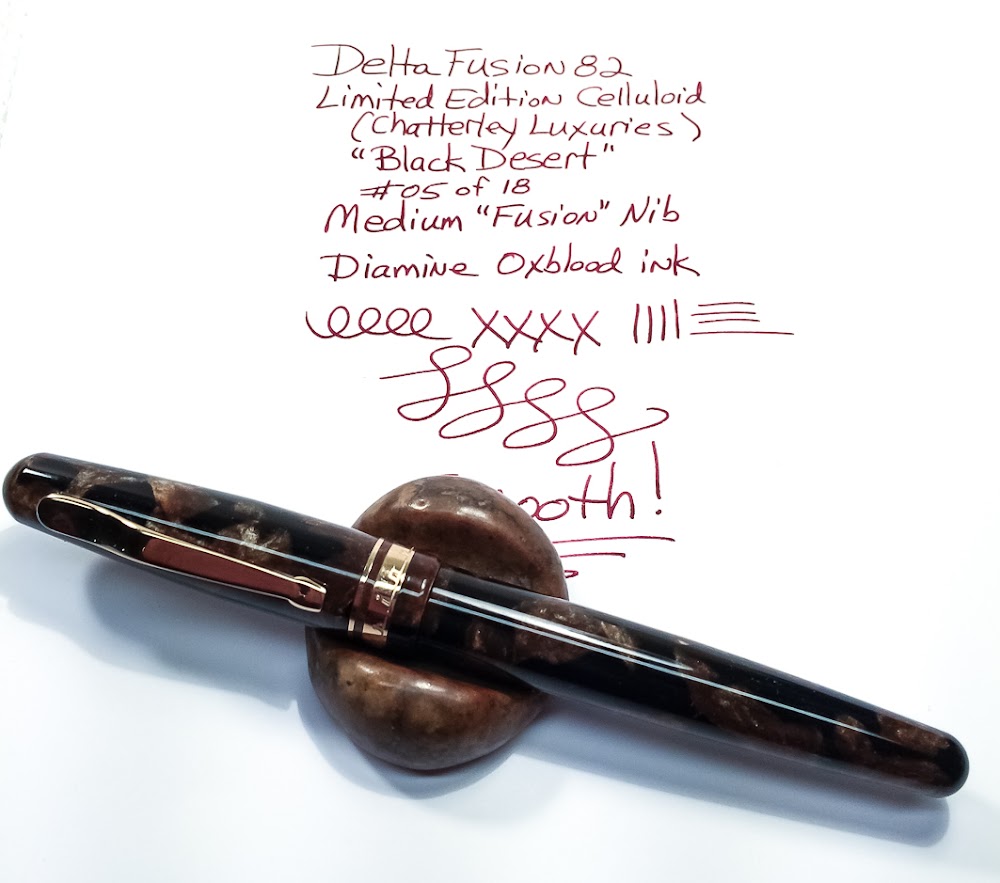 Delta Fusion 82
Limited Edition Celluloid
(Chatterley Luxuries)
"Black Desert"
#05 of 18
Medium "Fusion" Nib
Diamine Oxblood ink
XXXX
ooth!